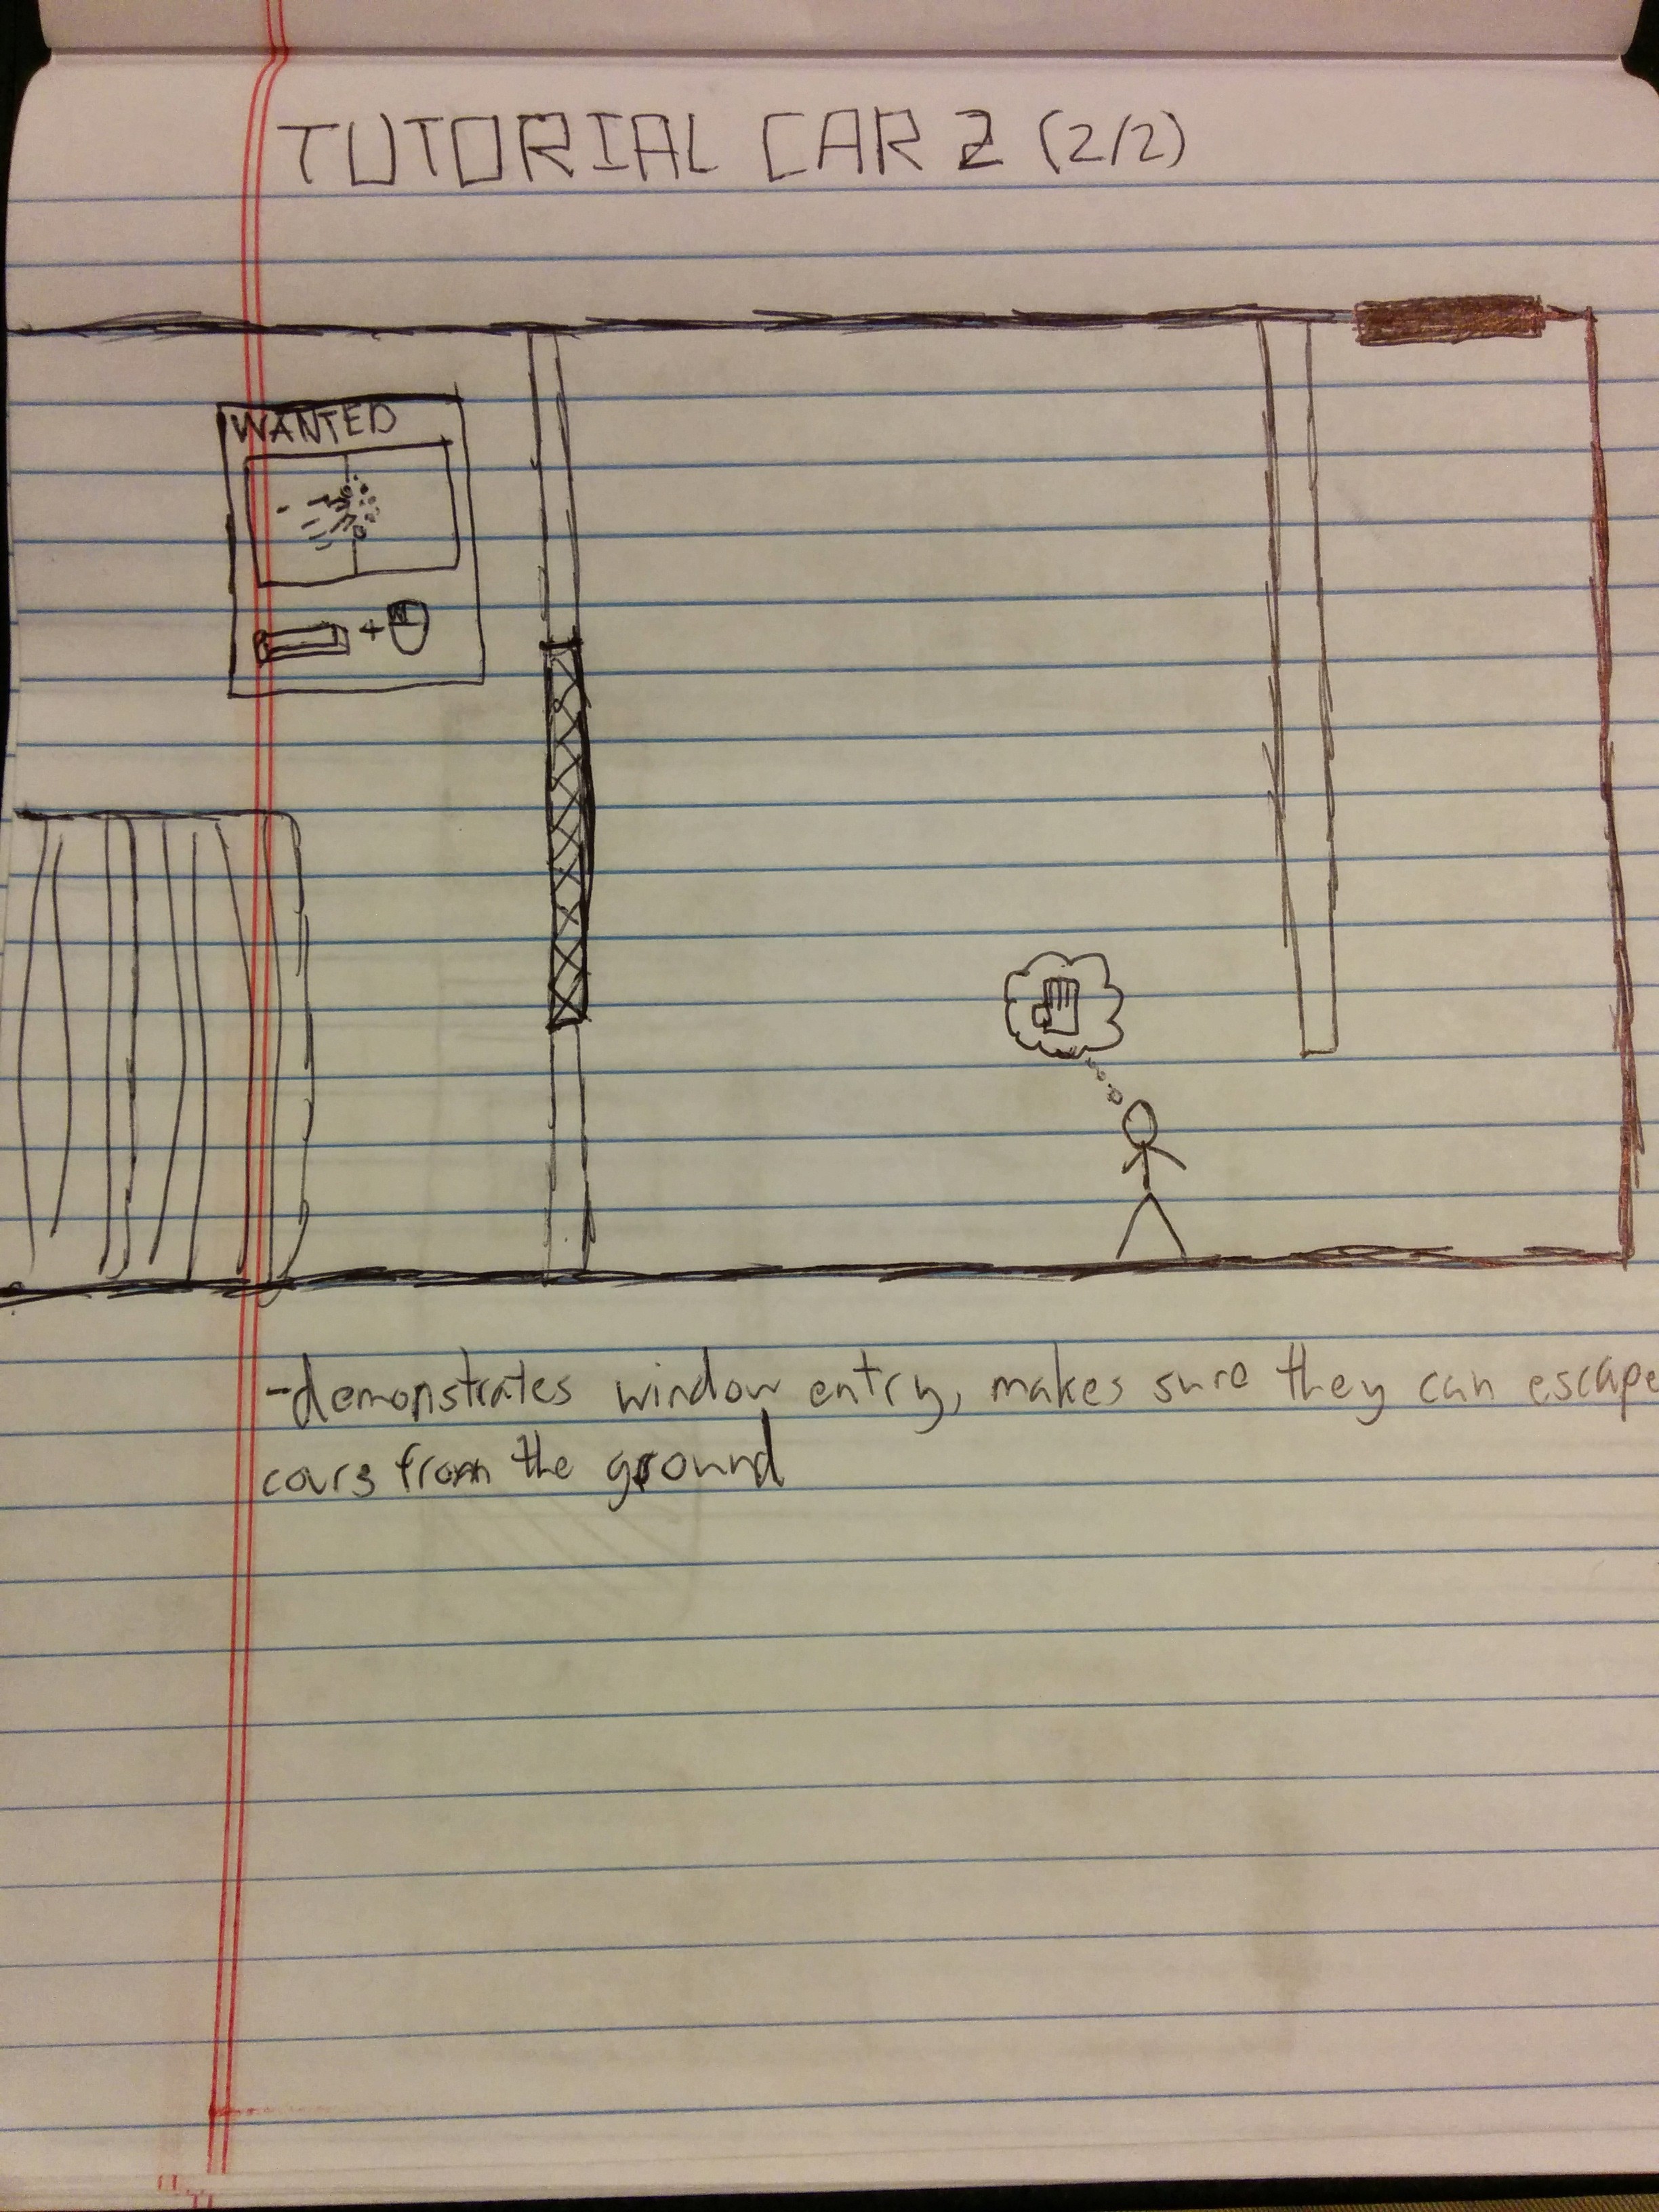 TUTORIAL CAR 2 (2/2)
WANTED
-demonstrates window entry, makes sure they can escape
cars from the ground